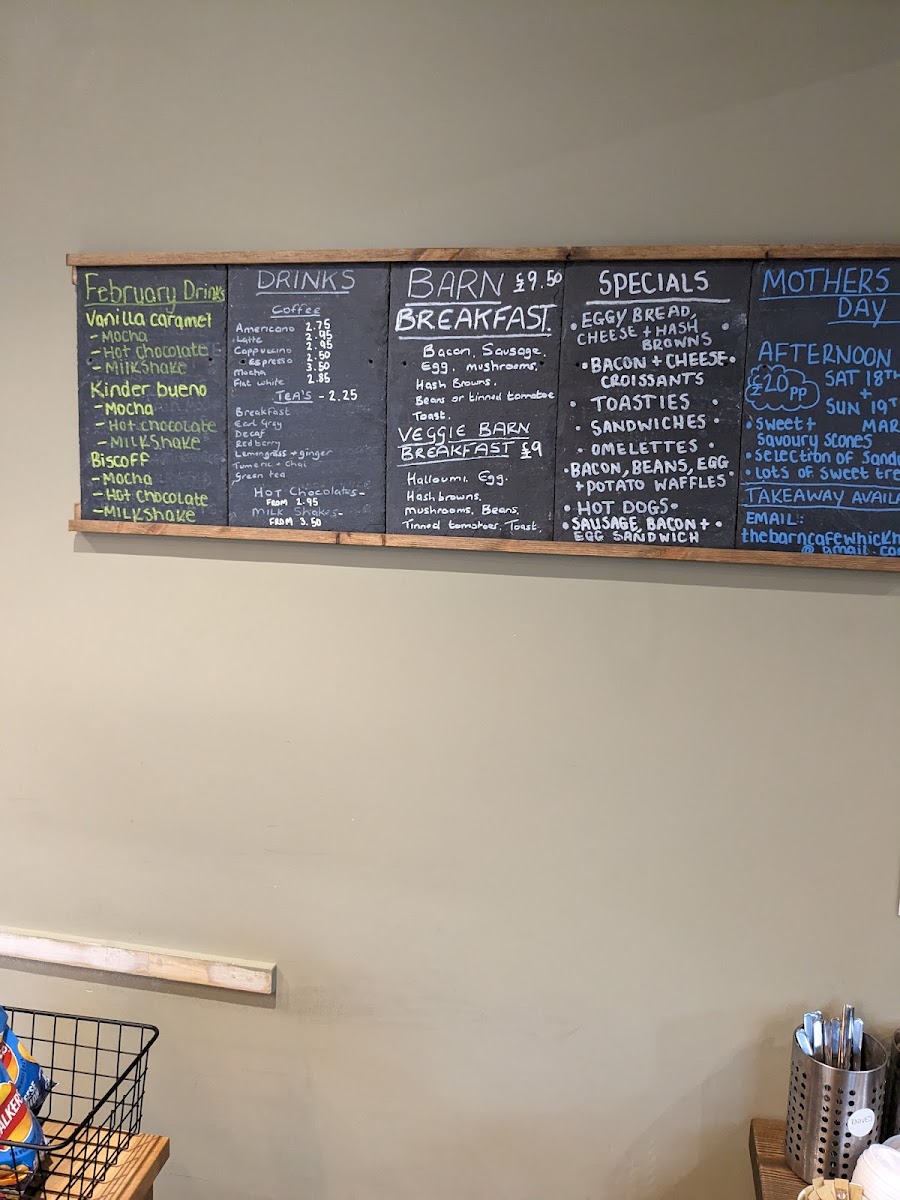 February Drinks
Vanilla caramel
- Mocha
- Hot chocolate
- Milkshake
Kinder bueno
- Mocha
- Hot chocolate
- Milkshake
Biscoff
- Mocha
- Hot chocolate
- Milkshake
DRINKS
Coffee
Americano 2.75
Latte 2.95
Cappuccino 2.95
Espresso 2.50
Mocha 3.50
Flat white 2.85
TEA'S - 2.25
Breakfast
Earl Gray
Decaf
Red berry
Lemongrass + ginger
Tumeric + Chai
Green tea
HOT Chocolates -
FROM 2.95
MILK Shakes -
FROM 3.50
BARN £9.50
BREAKFAST.
Bacon, Sausage,
Egg, mushrooms,
Hash Browns,
Beans or tinned tomatoe
Toast.
VEGGIE BARN
BREAKFAST £9
Halloumi, Egg,
Hash browns,
mushrooms, Beans,
Tinned tomatoes, Toast.
SPECIALS
• EGGY BREAD,
CHEESE + HASH
BROWNS
• BACON + CHEESE •
CROISSANTS
• TOASTIES •
• SANDWICHES •
• OMELETTES •
• BACON, BEANS, EGG •
+ POTATO WAFFLES
• HOT DOGS •
• SAUSAGE, BACON + •
EGG SANDWICH
MOTHERS
DAY
AFTERNOON
£20 pp
SAT 18TH
+
SUN 19TH
MAR
• sweet +
savoury scones
• selection of sand
• Lots of sweet tre
TAKEAWAY AVAILA
EMAIL:
thebarncafewhickh
@gmail.co
ALKER
KNIVES